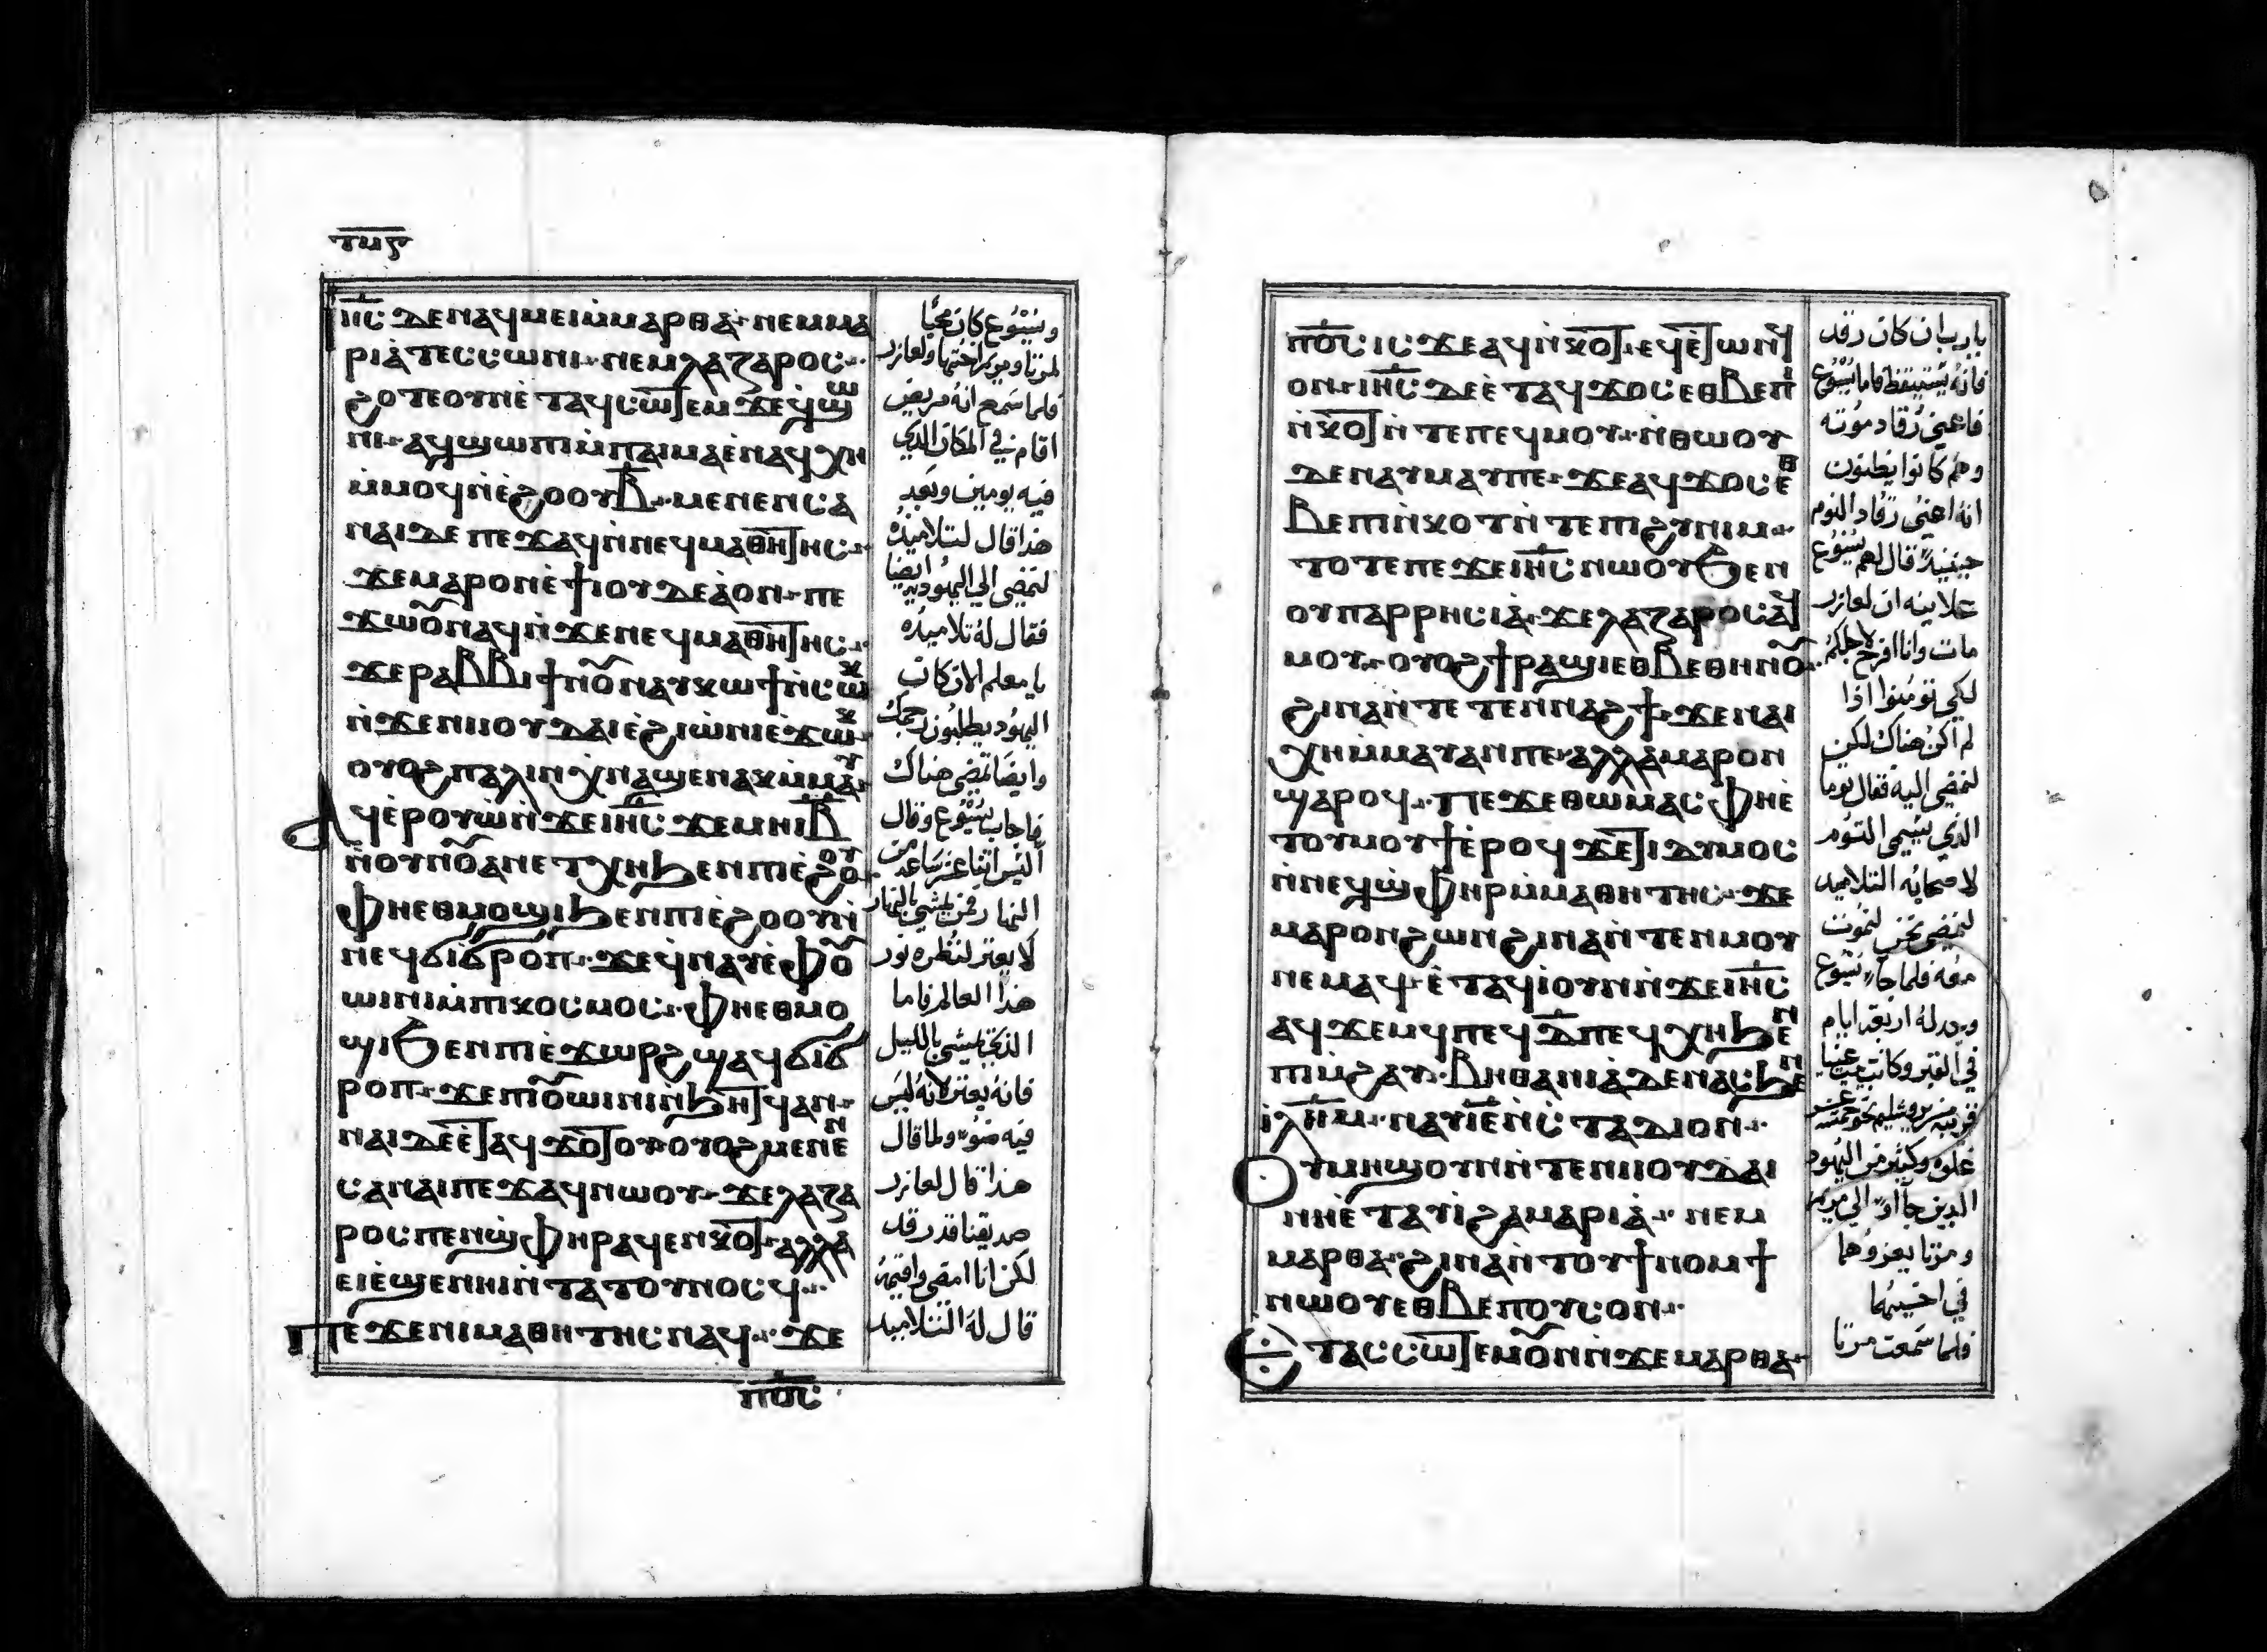 ⲧⲙⲋ
ⲓⲏ̅ⲥ̅ ⲇⲉ ⲛⲁϥⲙⲉⲓ ⲙ̀ⲙⲁⲣⲑⲁ · ⲛⲉⲙ ⲙⲁ
ⲣⲓⲁ̀ ⲧⲉⲥⲥⲱⲛⲓ · ⲛⲉⲙ ⲗⲁⲍⲁⲣⲟⲥ ⁖
ϩⲟⲧⲉ ⲟⲩⲛ ⲉ̀ⲧⲁϥⲥⲱⲧⲉⲙ ϫⲉ ϥ̀ϣⲱ
ⲛⲓ · ⲁϥϣⲱⲡⲓ ⲙ̀ⲡⲁⲓⲙⲁ ⲉ̀ⲛⲁϥⲭⲏ
ⲙ̀ⲙⲟϥ ⲛ̀ⲉ̀ϩⲟⲟⲩ ⲃ̅ · ⲙⲉⲛⲉⲛⲥⲁ
ⲛⲁⲓ ⲇⲉ ⲡⲉϫⲁϥ ⲛ̀ⲛⲉϥⲙⲁⲑⲏⲧⲏⲥ ⁖
ϫⲉ ⲙⲁⲣⲟⲛ ⲉ̀ϯⲓⲟⲩⲇⲉⲁ̀ ⲟⲛ · ⲡⲉ
ϫⲱⲟⲩ ⲛⲁϥ ⲛ̀ϫⲉ ⲛⲉϥⲙⲁⲑⲏⲧⲏⲥ ⁖
ϫⲉ ⲣⲁⲃⲃⲓ ϯⲛⲟⲩ ⲛⲁⲩⲕⲱϯ ⲛ̀ⲥⲱⲕ
ⲛ̀ϫⲉ ⲛⲓⲓⲟⲩⲇⲁⲓ ⲉ̀ϩⲓⲱ̀ⲛⲓ ⲉ̀ϫⲱⲕ ·
ⲟⲩⲟϩ ⲡⲁⲗⲓⲛ ⲭ̀ⲛⲁϣⲉⲛⲁⲕ ⲙ̀ⲙⲁⲩ ·
ⲁϥⲉⲣⲟⲩⲱ̀ ⲛ̀ϫⲉ ⲓⲏ̅ⲥ̅ ϫⲉ ⲙⲏ ⲓ̅ⲃ̅
ⲛ̀ⲟⲩⲛⲟⲩ ⲁⲛ ⲉⲧⲭⲏ ϧⲉⲛ ⲡⲓⲉ̀ϩⲟⲟⲩ ·
ⲫⲏ ⲉⲑⲙⲟϣⲓ ϧⲉⲛ ⲡⲓⲉ̀ϩⲟⲟⲩ ⲙ̀
ⲡⲉϥϭⲓϭⲣⲟⲡ · ϫⲉ ϥ̀ⲛⲁⲩ ⲉ̀ⲫⲟⲩ
ⲱⲓⲛⲓ ⲙ̀ⲡⲓⲕⲟⲥⲙⲟⲥ · ⲫⲏ ⲉⲑⲙⲟ
ϣⲓ ϧⲉⲛ ⲡⲓⲉ̀ϫⲱⲣϩ ϣⲁϥϭⲓϭ
ⲣⲟⲡ · ϫⲉ ⲡⲓⲟⲩⲱⲓⲛⲓ ⲛ̀ϧⲏⲧϥ ⲁⲛ ·
ⲛⲁⲓ ⲇⲉ ⲉ̀ⲧⲁϥϫⲟⲧⲟⲩ ⲟⲩⲟϩ ⲙⲉⲛⲉⲛ
ⲥⲁ ⲛⲁⲓ ⲡⲉϫⲁϥ ⲛⲱⲟⲩ · ϫⲉ ⲗⲁⲍⲁ
ⲣⲟⲥ ⲡⲉⲛϣ̀ⲫⲏⲣ ⲁϥⲉⲛⲕⲟⲧ · ⲁⲗⲗⲁ
ⲉⲓⲉ̀ϣⲉⲛⲏⲓ ⲛ̀ⲧⲁⲧⲟⲩⲛⲟⲥϥ ⁖
ⲡⲉϫⲉ ⲛⲓⲙⲁⲑⲏⲧⲏⲥ ⲛⲁϥ ⁖ ϫⲉ
ⲡⲟ̅ⲥ̅
ويسوع كان محبا
لمرتا ومريم اختها ولعازر
فلما سمع انه مريض
اقام في المكان الذي
فيه يومين وبعد
هذا قال لتلاميذه
لنمضي الي اليهودية ايضا
فقال له تلاميذه
يا معلم الان كان
اليهود يطلبون رجمك
وايضا تمضي هناك
فاجاب يسوع وقال
اليس اثنا عشر ساعه من
النهار فمن يمشي بالنهار
لا يعتر لنظره نور
هذا العالم فاما
الذي يمشي بالليل
فانه يعتر لانه ليس
فيه ضوء ولما قال
هذا قال لعازر
صديقنا قد رقد
لكن انا امضي واقيمه
قال له التلاميد
ⲡⲟ̅ⲥ̅ ⲓⲥϫⲉ ⲁϥⲛ̀ⲕⲟⲧ ⲉϥⲉ̀ⲧⲱⲛϥ
ⲟⲛ · ⲓⲏ̅ⲥ̅ ⲇⲉ ⲉ̀ⲧⲁϥϫⲟⲥ ⲉⲑⲃⲉ ⲡⲓ
ⲛ̀ⲕⲟⲧ ⲛ̀ⲧⲉ ⲡⲉϥⲙⲟⲩ · ⲛ̀ⲑⲱⲟⲩ
ⲇⲉ ⲛⲁⲩⲙⲁⲩⲓ ⲡⲉ · ϫⲉ ⲁϥϫⲟⲥ ⲉⲑ
ⲃⲉ ⲡⲓⲛ̀ⲕⲟⲧ ⲛ̀ⲧⲉ ⲡⲓϩⲩⲛⲓⲙ ·
ⲧⲟⲧⲉ ⲡⲉϫⲉ ⲓⲏ̅ⲥ̅ ⲛⲱⲟⲩ ϧⲉⲛ
ⲟⲩⲡⲁⲣⲣⲏⲥⲓⲁ̀ · ϫⲉ ⲗⲁⲍⲁⲣⲟⲥ ⲁϥ
ⲙⲟⲩ · ⲟⲩⲟϩ ϯⲣⲁϣⲓ ⲉⲑⲃⲉ ⲑⲏⲛⲟⲩ ·
ϩⲓⲛⲁ ⲛ̀ⲧⲉⲧⲉⲛⲛⲁϩϯ · ϫⲉ ⲛⲁⲓ
ⲭⲏ ⲙ̀ⲙⲁⲩ ⲁⲛ ⲡⲉ · ⲁⲗⲗⲁ ⲙⲁⲣⲟⲛ
ϣⲁⲣⲟϥ ⁖ ⲡⲉϫⲉ ⲑⲱⲙⲁⲥ ⲫⲏ ⲉ̀
ⲧⲟⲩⲙⲟⲩϯ ⲉ̀ⲣⲟϥ ϫⲉ ⲇⲓⲇⲩⲙⲟⲥ
ⲛ̀ⲛⲉϥϣ̀ⲫⲏⲣ ⲙ̀ⲙⲁⲑⲏⲧⲏⲥ · ϫⲉ
ⲙⲁⲣⲟⲛ ϩⲱⲛ ϩⲓⲛⲁ ⲛ̀ⲧⲉⲛⲙⲟⲩ
ⲛⲉⲙⲁϥ · ⲉ̀ⲧⲁϥⲓ̀ ⲟⲩⲛ ⲛ̀ϫⲉ ⲓⲏ̅ⲥ̅
ⲁϥϫⲉⲙϥ ⲡⲉϥⲇ̅ ⲡⲉ ϥⲭⲏ ϧⲉⲛ
ⲡⲓⲙ̀ϩⲁⲩ · ⲃⲏⲑⲁⲛⲓⲁ̀ ⲇⲉ ⲛⲁⲥϧⲉⲛⲧ ⲉ̀
ⲓⲗ̅ⲏ̅ⲙ̅ · ⲛⲁⲩⲓ̅ⲉ̅ ⲛ̀ⲥⲧⲁⲇⲓⲟⲛ ⁖
ⲟⲩⲙⲏϣ ⲟⲩⲛ ⲛ̀ⲧⲉ ⲛⲓⲓⲟⲩⲇⲁⲓ
ⲛⲏ ⲉ̀ⲧⲁⲩⲓ̀ ϩⲁ ⲙⲁⲣⲓⲁ̀ ⁖ ⲛⲉⲙ
ⲙⲁⲣⲑⲁ · ϩⲓⲛⲁ ⲛ̀ⲧⲟⲩϯⲛⲟⲙϯ
ⲛⲱⲟⲩ ⲉⲑⲃⲉ ⲡⲟⲩⲥⲟⲛ ⁖
ⲉⲧⲁⲥⲥⲱⲧⲉⲙ ⲟⲩⲛ ⲛ̀ϫⲉ ⲙⲁⲣⲑⲁ ·
يارب ان كان رقد
فانه يستيقظ فاما يسوع
فاعني رقاد موته
وهم كانوا يظنون
انه اعني رقاد النوم
حينيذ قال لهم يسوع
علانيه ان لعازر
مات وانا افرح لاجلكم
لكي تومنوا اذا
لم اكن هناك لكن
لنمضي اليه فقال توما
الذي يسمي التوم
لاصحابه التلاميد
لنمضي نحن لنموت
معه فلما جاء يسوع
وجد له اربعه ايام
في القبر وكانت بيت عنيا
قريبه من يروشليم نحو خمسه عشر
غلوه وكثير من اليهود
الدين جااو الي مريم
ومرتا يعزوهما
في اخيهما
فلما سمعت مرتا